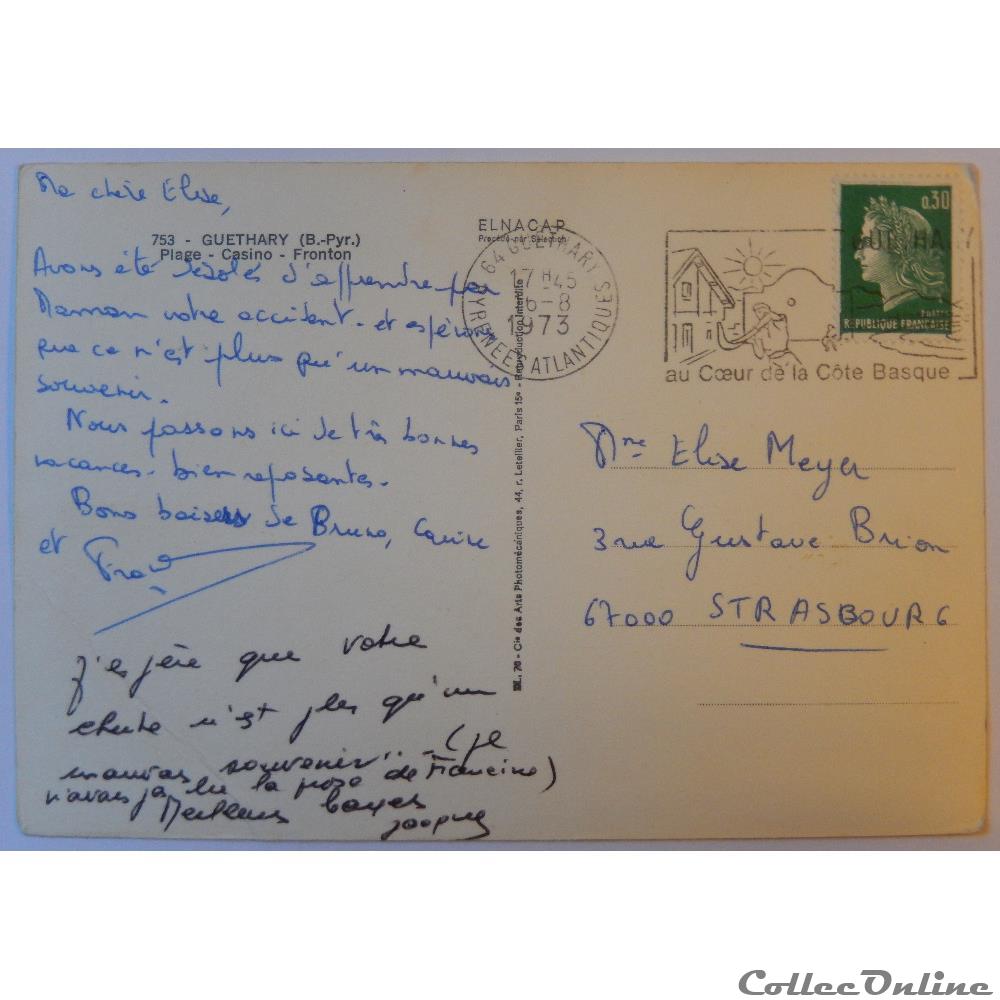 Ma chère Elise,
753 - GUETHARY (B.-Pyr.)
Plage - Casino - Fronton
Avons été désolés d'apprendre par
Maman votre accident - et espérons
que ce n'est plus qu'un mauvais
souvenir.
Nous passons ici de très bonnes
vacances - bien reposantes.
Bons baisers de Bruno,
et
J'espère que votre
chute n'est plus qu'un
mauvais souvenir" - (je
n'avais pas lu la prose de Francine)
Meilleurs
Jacques
ELNACAP
Procédé par Sélection
DL. 70 - Cie des Arts Photomécaniques, 44, r. Letellier, Paris 15e - Reproduction Interdite
64 GUETHARY
17 H 45
6-8
1973
PYRENEES ATLANTIQUES
0,30
POSTES
REPUBLIQUE FRANÇAISE
GUETHARY
au Cœur de la Côte Basque
Mme Elise Meyer
3 rue Gustave Brion
67000 STRASBOURG
CollecOnline